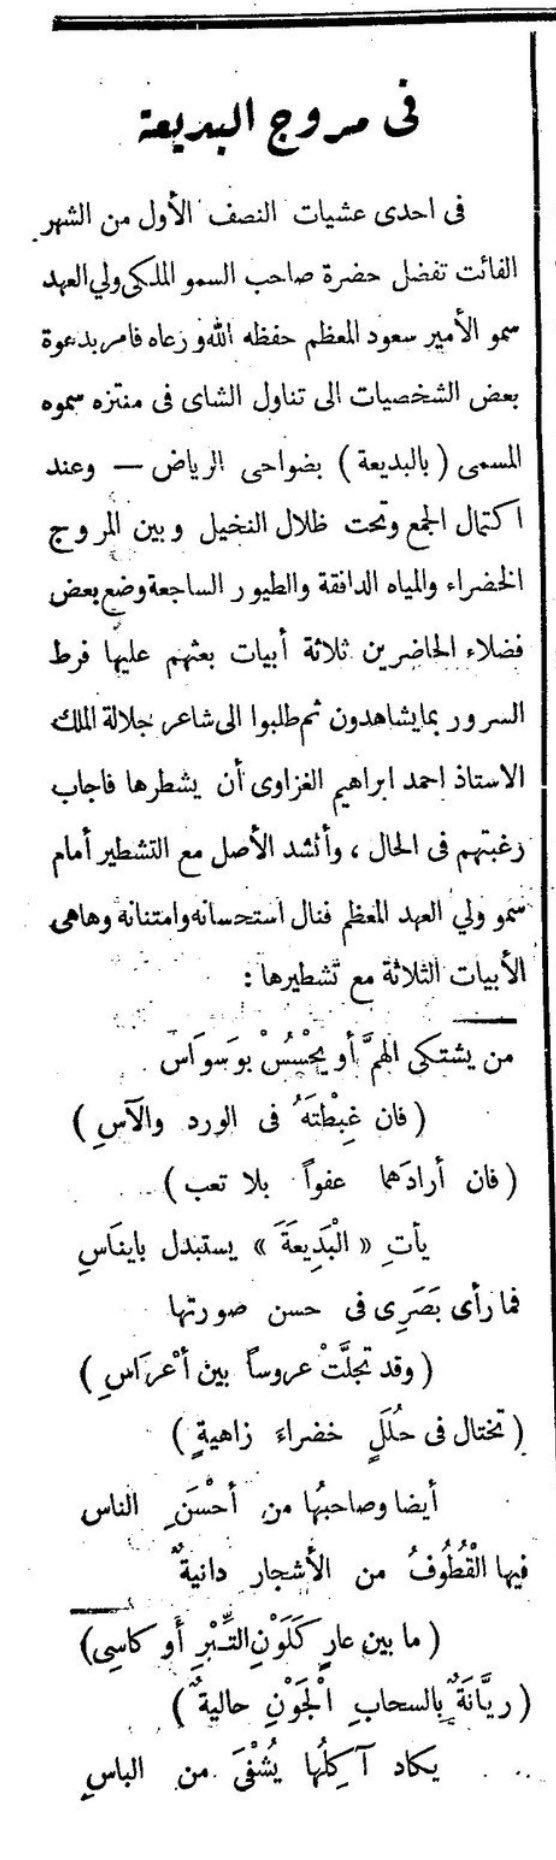 فى مروج البديعة
فى احدى عشيات النصف الأول من الشهر
الفائت تفضل حضرة صاحب السمو الملكى ولي العهد
سمو الأمير سعود المعظم حفظه الله ورعاه فامر بدعوة
بعض الشخصيات الى تناول الشاى فى منتزه سموه
المسمى ( بالبديعة ) بضواحى الرياض — وعند
اكتمال الجمع وتحت ظلال النخيل وبين المروج
الخضراء والمياه الدافقة والطيور الساجعة وضع بعض
فضلاء الحاضرين ثلاثة أبيات بعثهم عليها فرط
السرور بما يشاهدون ثم طلبوا الى شاعر جلالة الملك
الاستاذ احمد ابراهيم الغزاوى أن يشطرها فاجاب
رغبتهم فى الحال ، وأنشد الأصل مع التشطير أمام
سمو ولي العهد المعظم فنال استحسانه وامتنانه وهاهى
الأبيات الثلاثة مع تشطيرها :
من يشتكى الهمَّ أو يحْسُسْ بوَسوَاس
( فان غِبْطتَهَُ فى الورد والآسِ )
( فان أرادَهما عفواً بلا تعب )
يأتِ « الْبَدِيعَةَ » يستبدل بايناَسِ
فما رأى بَصَرِى فى حسن صورتها
( وقد تجلَّتْ عروساً بين أعْرَاسِ )
( تختال فى حُلَلٍ خضراءَ زاهيةٍ )
أيضا وصاحبُها من أحْسَنِ الناس
فيها الْقُطُوفُ من الأشجار دانيةٌ
( ما بين عارٍ كَلَوْنِ التِّبْرِ أَو كاسِى )
( ريَّانَةٌ بالسحابِ الْجَوْنِ حاليةٌ )
يكاد آكِلُها يُشْفَى من الباسِ